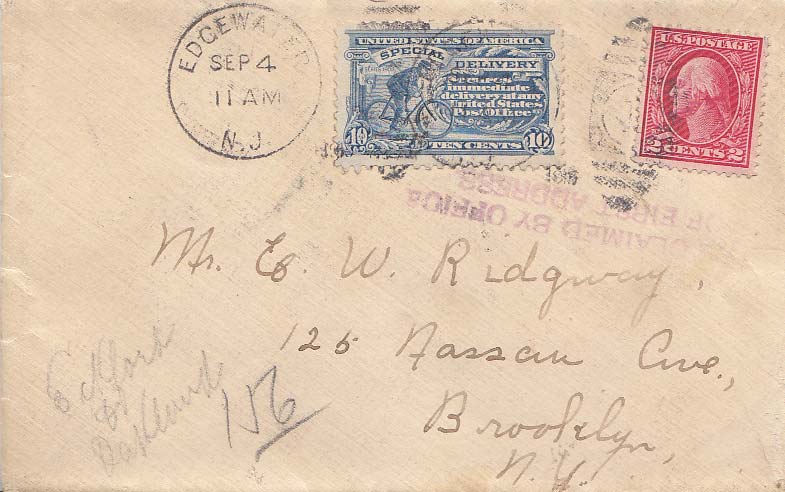 EDGEWATER
SEP 4
11 AM
N.J.
UNITED STATES OF AMERICA
SPECIAL DELIVERY
Secures
immediate
delivery at any
United States
Post Office
10 TEN CENTS 10
U.S. POSTAGE
2 CENTS 2
CLAIMED BY OFFICE
OF FIRST ADDRESS
Mr. E. W. Ridgway,
125 Nassau Ave.,
Brooklyn,
N.Y.
Eckford
156